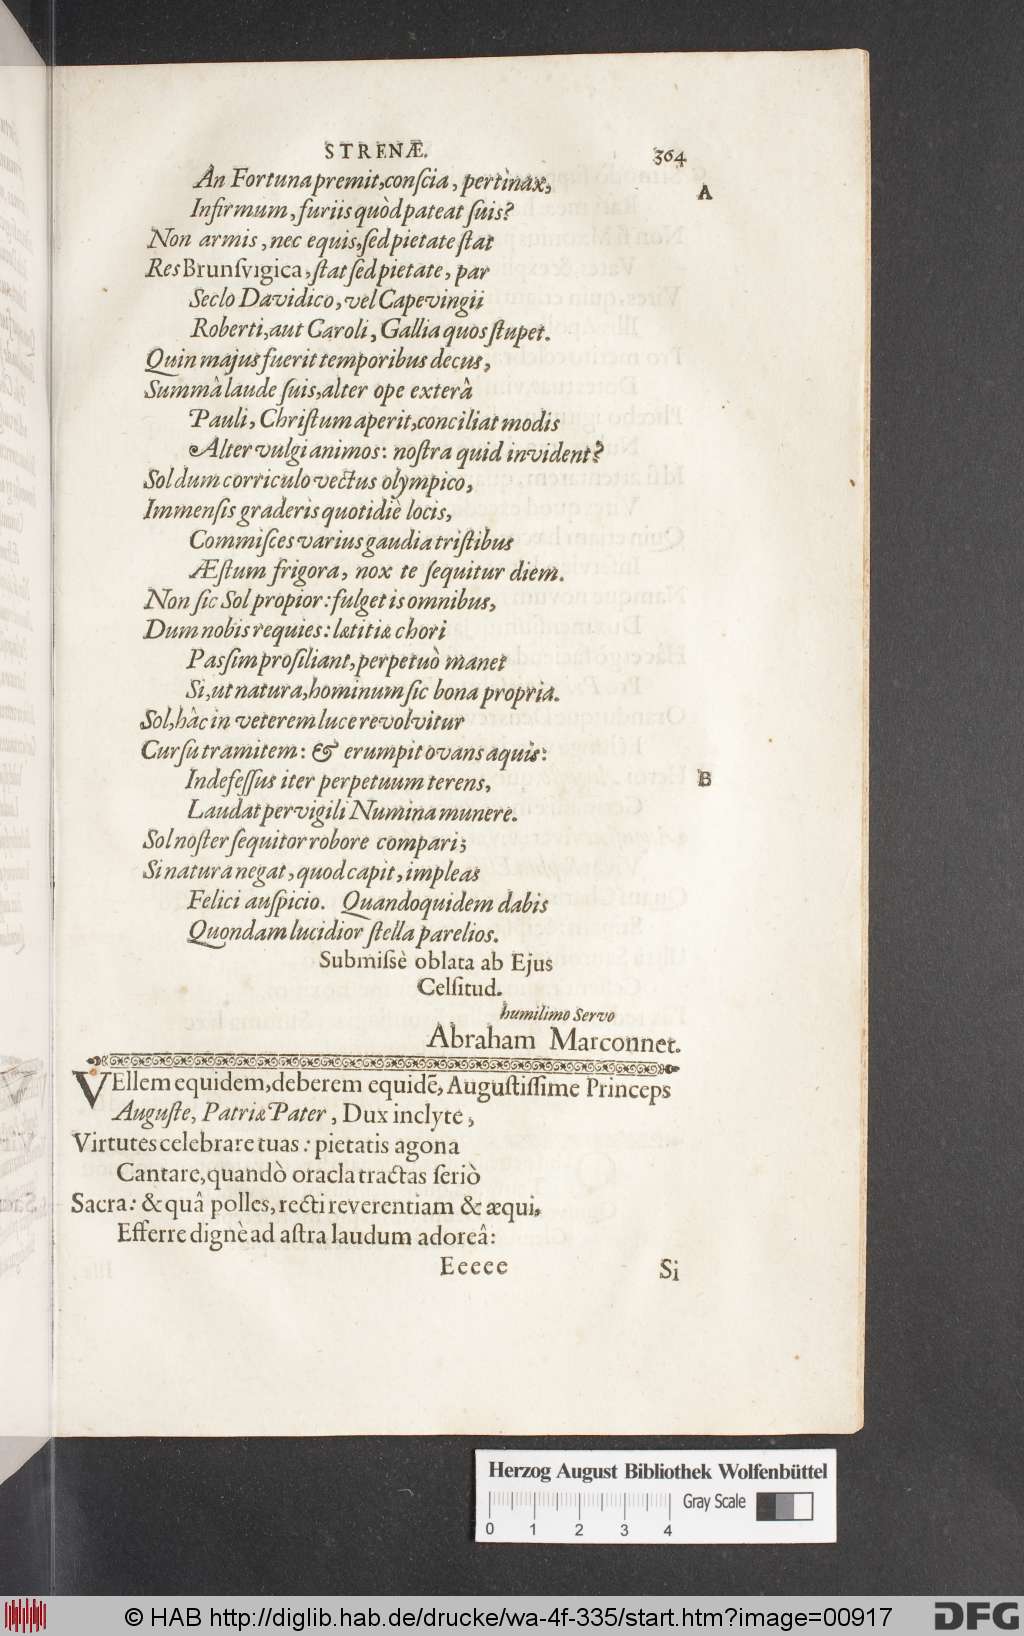 STRENÆ.
364
An Fortuna premit, conſcia, pertinax,
A
Infirmum, furiis quòd pateat ſuis?
Non armis, nec equis, ſed pietate ſtat
Res Brunſvigica, ſtat ſed pietate, par
Seclo Davidico, vel Capevingii
Roberti, aut Caroli, Gallia quos ſtupet.
Quin majus fuerit temporibus decus,
Summâ laude ſuis, alter ope exterâ
Pauli, Chriſtum aperit, conciliat modis
Alter vulgi animos: noſtra quid invident?
Sol dum corriculo vectus olympico,
Immenſis graderis quotidiè locis,
Commiſces varius gaudia triſtibus
Æſtum frigora, nox te ſequitur diem.
Non ſic Sol propior: fulget is omnibus,
Dum nobis requies: lætitiæ chori
Paſſim proſiliant, perpetuò manet
Si, ut natura, hominum ſic bona propria.
Sol, hâc in veterem luce revolvitur
Curſu tramitem: & erumpit ovans aquis:
Indefeſſus iter perpetuum terens,
B
Laudat pervigili Numina munere.
Sol noſter ſequitor robore compari;
Si natura negat, quod capit, impleas
Felici auſpicio. Quandoquidem dabis
Quondam lucidior ſtella parelios.
Submiſsè oblata ab Ejus
Celſitud.
humilimo Servo
Abraham Marconnet.
VEllem equidem, deberem equidẽ, Auguſtiſſime Princeps
Auguſte, Patriæ Pater, Dux inclyte,
Virtutes celebrare tuas: pietatis agona
Cantare, quandò oracla tractas ſeriò
Sacra: & quâ polles, recti reverentiam & æqui,
Efferre dignè ad aſtra laudum adoreâ:
Eeeee
Si
Herzog August Bibliothek Wolfenbüttel
Gray Scale
0 1 2 3 4
© HAB http://diglib.hab.de/drucke/wa-4f-335/start.htm?image=00917
DFG